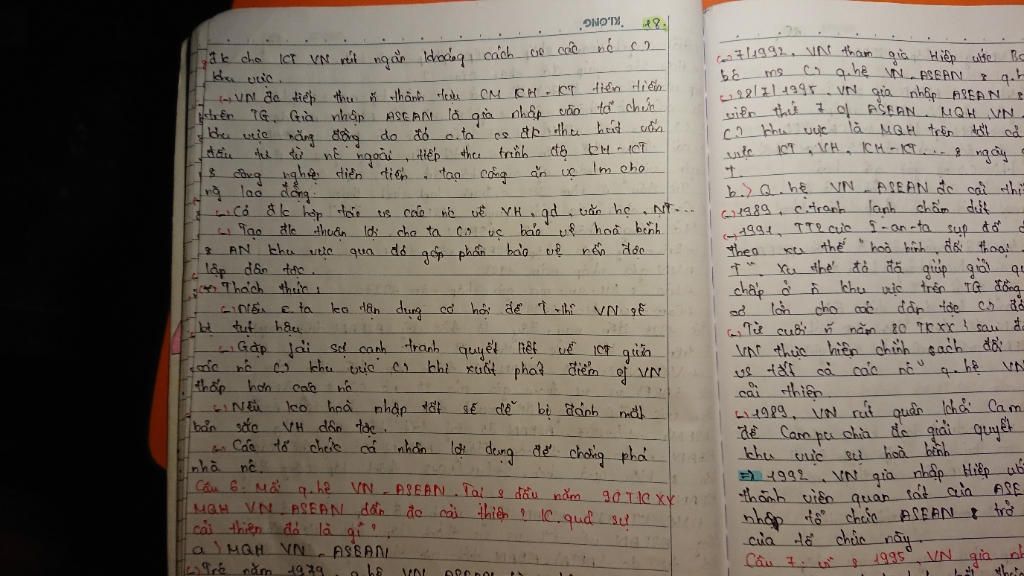 KLONG
18.
đk cho KT VN rút ngắn khoảng cách vs các nc
khu vực.
VN đc tiếp thu n thành tựu CM KH-KT tiên tiến
trên TG. Gia nhập ASEAN là gia nhập vào tổ chức
khu vực năng động do đó c.ta cs đk thu hút vốn
đầu tư từ nc ngoài, tiếp thu trình độ KH-KT
& công nghiệ tiên tiến. tạo công ăn vc lm cho
ng lao động
Có đk hợp tác vs các nc về VH, gd, văn hc, NT...
Tạo đk thuận lợi cho ta vc bảo vệ hoà bình
& AN khu vực qua đó góp phần bảo vệ nền độc
lập dân tộc.
(*) Thách thức:
Nếu c.ta ko tận dụng cơ hội để T-thì VN sẽ
bị tụt hậu
Gặp fải sự cạnh tranh quyết liệt về KT giữa
các nc khu vực khi xuất phát điểm of VN
thấp hơn các nc
Nếu ko hoà nhập tốt sẽ dễ bị đánh mất
bản sắc VH dân tộc.
Các tổ chức cá nhân lợi dụng để chống phá
nhà nc.
Câu 6: Mối q.hệ VN-ASEAN. Tại s đầu năm 90 TK XX
MQH VN ASEAN đần đc cải thiện? K.quả sự
cải thiện đó là gì?
a) MQH VN-ASEAN
Trc năm 1979, q.hệ VN ASEAN
7/1992, VN tham gia Hiệp ước
q.hệ VN-ASEAN & q.h
28/7/1995, VN gia nhập ASEAN &
viên thứ 7 of ASEAN. MQH VN
khu vực là MQH trên tất cả
vực KT, VH, KH-KT.... & ngày
T.
b) Q.hệ VN-ASEAN đc cải thi
1989, c.tranh lạnh chấm dứt
1991, TTTG cực I-an-ta sụp đổ
theo xu thế "hoà bình, đối thoại
T". Xu thế đó đã giúp giải qu
chấp ở n khu vực trên TG đồng
cơ lớn cho các dân tộc
Từ cuối n năm 80 TK XX: sau
VN thực hiện chính sách đối
vs tất cả các nc q.hệ VN
cải thiện.
1989, VN rút quân khỏi Cam
đề Campuchia đc giải quyết
khu vực sự hoà bình
=> 1992, VN gia nhập Hiệp ước
thành viên quan sát của ASE
nhập tổ chức ASEAN & trở
của tổ chức này.
Câu 7: vì s 1995, VN gia nh